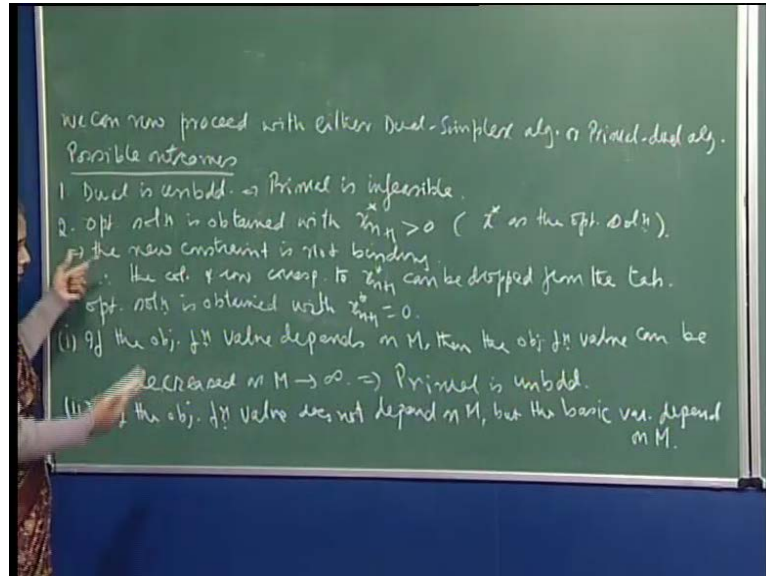 We can now proceed with either Dual-Simplex alg. or Primal-dual alg.
Possible outcomes
1. Dual is unbdd. ⇒ Primal is infeasible.
2. opt. soln is obtained with x*n+1 > 0 ( x* as the opt. soln).
⇒ the new constraint is not binding.
∴ the col. & row corresp. to x*n+1 can be dropped from the tab.
opt. soln is obtained with x*n+1 = 0.
(i) If the obj. fn value depends on M, then the obj. fn value can be
decreased as M → ∞. ⇒ Primal is unbdd.
the obj. fn value does not depend on M, but the basic var. depend
on M.